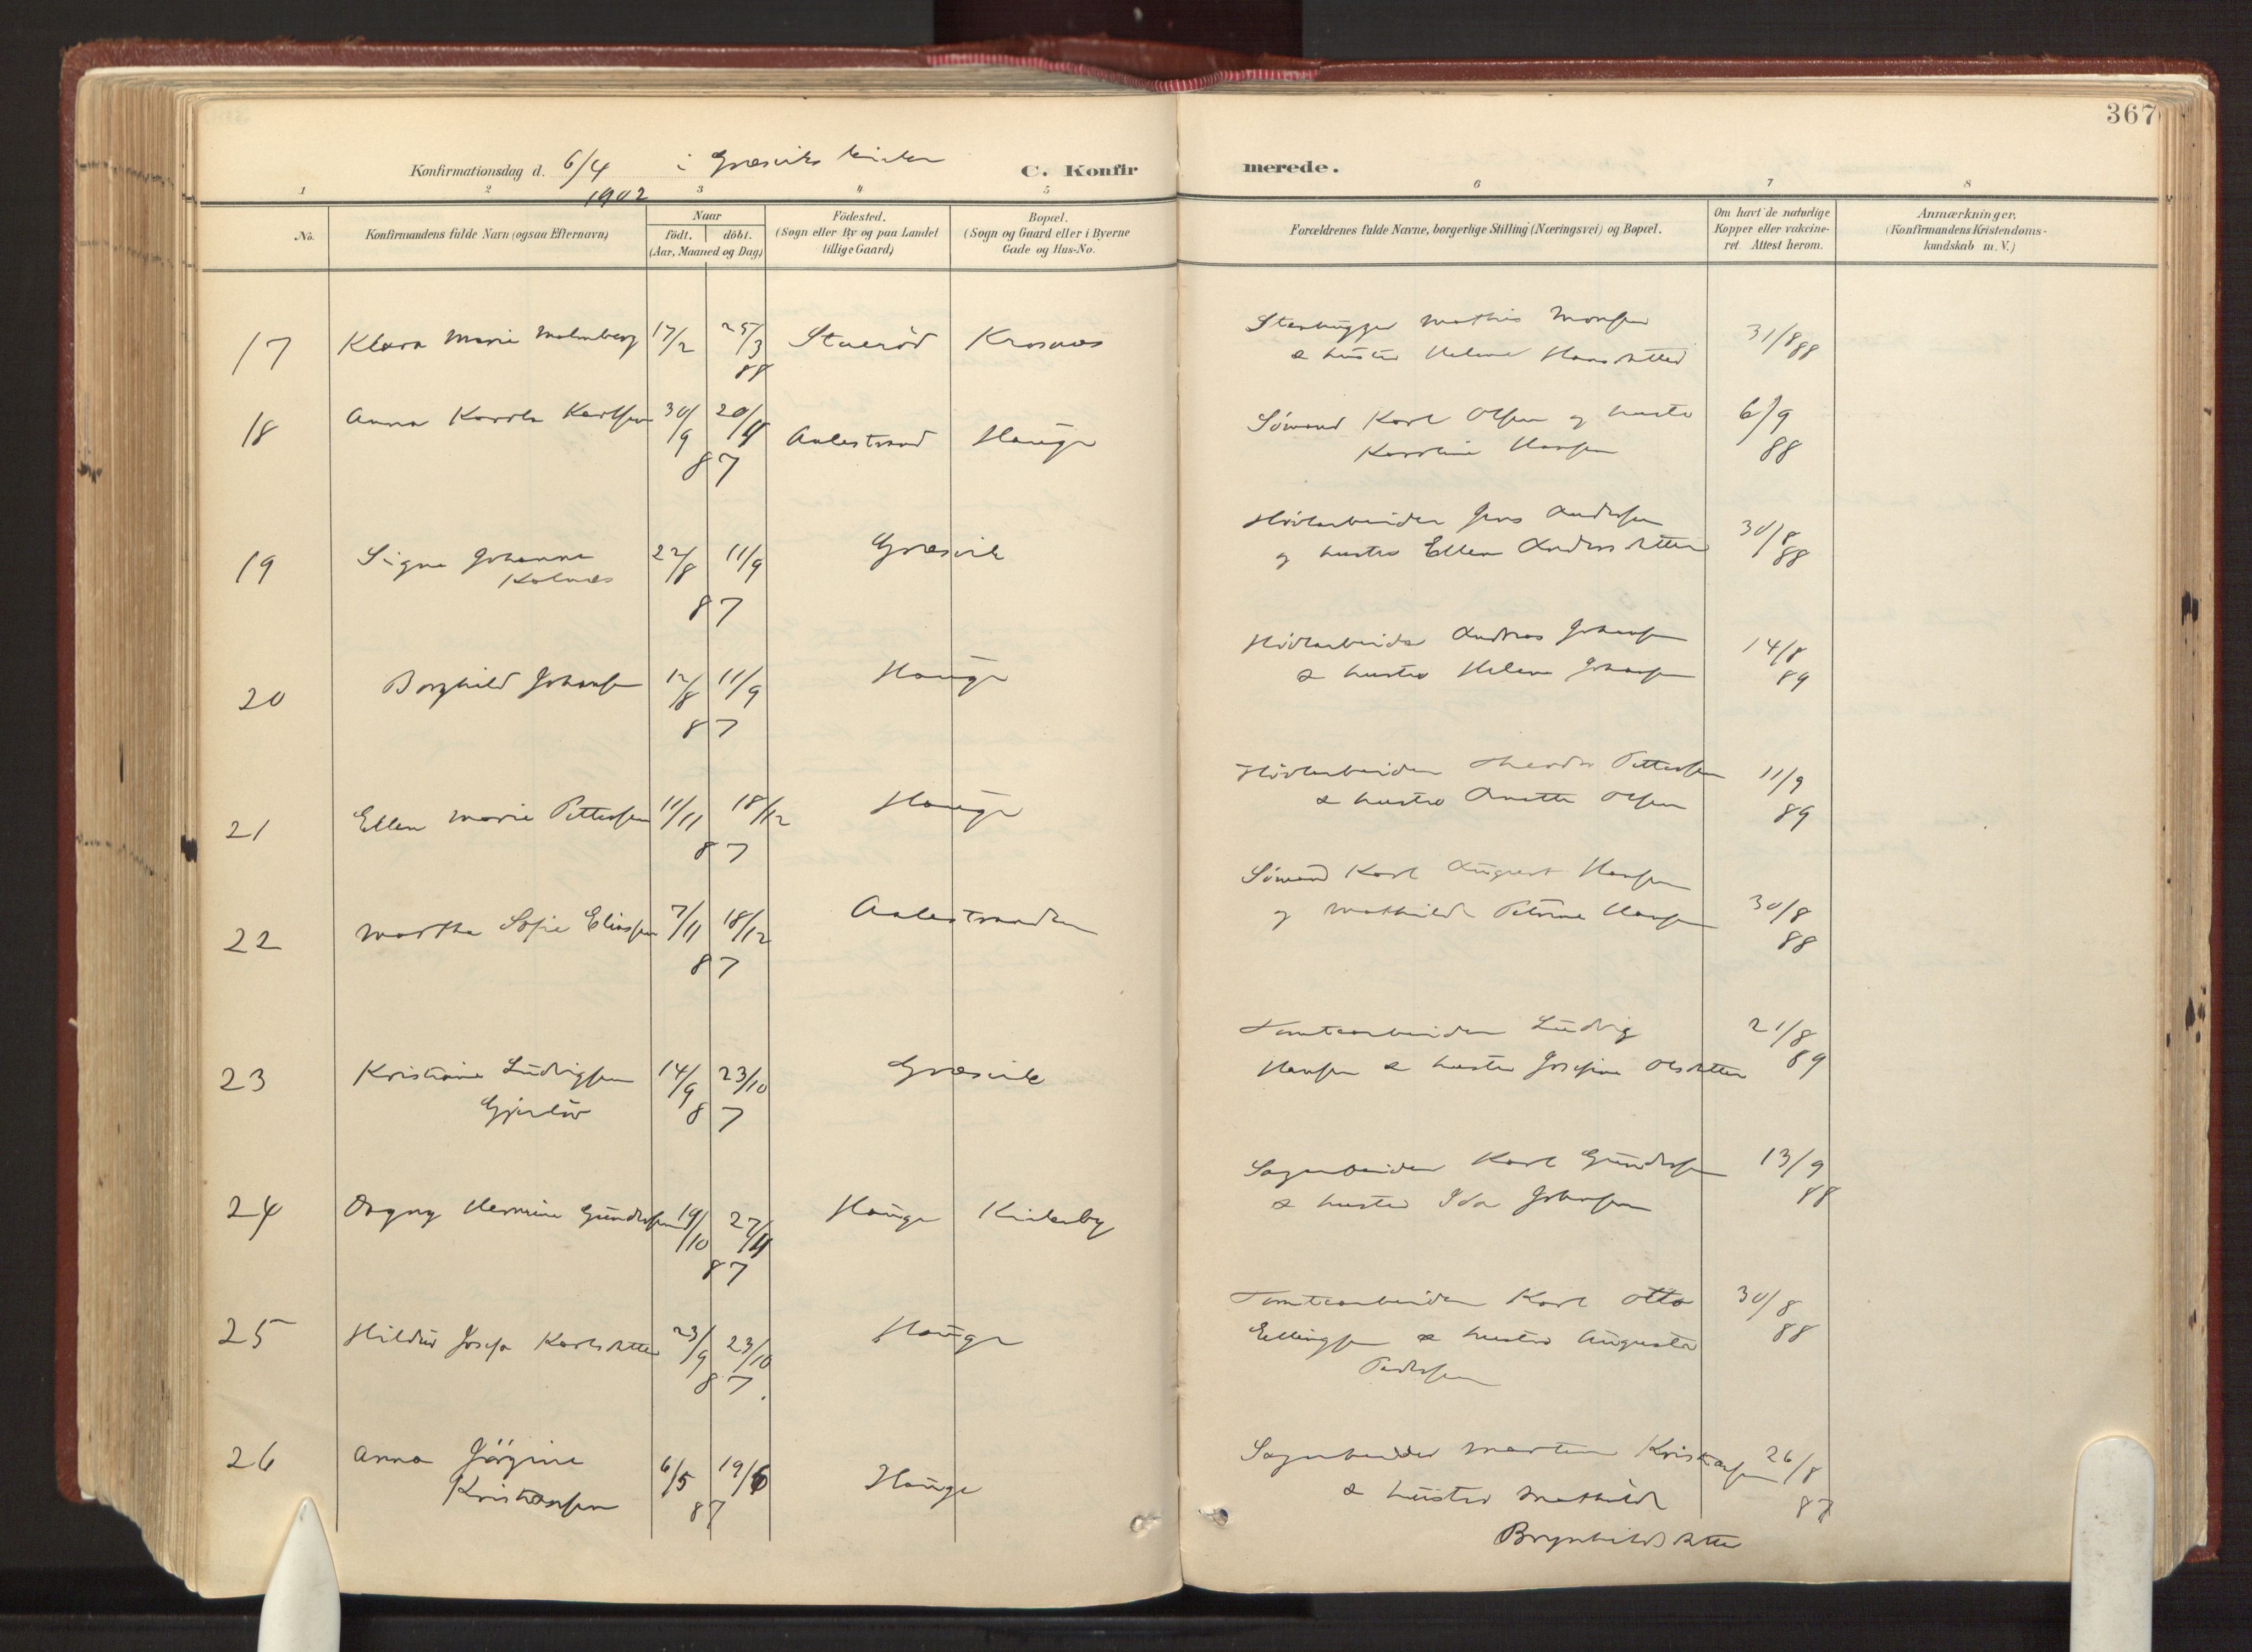 367
Konfirmationsdag d. 6/4 1902 i Græsviks kirke
C. Konfirmerede.
1 2 3 4 5 6 7 8
No.
Konfirmandens fulde Navn (ogsaa Efternavn)
Naar
födt. döbt.
(Aar, Maaned og Dag)
Födested.
(Sogn eller By og paa Landet
tillige Gaard)
Bopæl.
(Sogn og Gaard eller i Byerne
Gade og Hus-No.
Forældrenes fulde Navne, borgerlige Stilling (Næringsvei) og Bopæl.
Om havt de naturlige
Kopper eller vakcine-
ret. Attest herom.
Anmærkninger.
(Konfirmandens Kristendoms-
kundskab m. V.)
17 Klara Marie Malmberg 17/2 25/3 88 Krosnes
Stenhugger Mathis Monsen
& hustru Helene Hansdatter
31/8 88
18 Anna Karola Karlsen 30/9 20/11 87 Aalestrand Hauge
Sömand Karl Olsen og hustru
Karoline Hansen
6/9 88
19 Signe Johanne
Kolnes
22/8 11/9 87 Græsvik
Hövlarbeider Jens Andersen
og hustru Ellen Andersdatter
30/8 88
20 Borghild Johansen 12/8 11/9 87 Hauge
Hövlarbeider Andreas Johansen
& hustru Helene Johansen
14/8 89
21 Ellen Marie Pettersen 11/11 18/12 87 Hauge
Hövlarbeider Theodor Pettersen
& hustru Anette Olsen
11/9 89
22 Martha Sofie Eliassen 7/11 18/12 87 Aalestranden
Sömand Karl August Hansen
og Mathilde Petrine Hansen
30/8 88
23 Kristiane Ludvigsen
Gjerlöv
14/9 23/10 87 Græsvik
Tomtearbeider Ludvig
Hansen & hustru Josefine Olsdatter
21/8 89
24 Dagny Hermine Gundersen 19/10 27/11 87 Hauge Kirkeby
Sagarbeider Karl Gundersen
& hustru Ida Johansen
13/9 88
25 Hildur Josefa Karlsdatter 23/9 23/10 87 Hauge
Tomtearbeider Karl Otto
Ellingsen & hustru Augusta
Pedersen
30/8 88
26 Anna Jörgine
Kristiansen
6/5 19/6 87 Hauge
Sagarbeider Martin Kristiansen
& hustru Mathilde
Brynhildsdatter
26/8 87